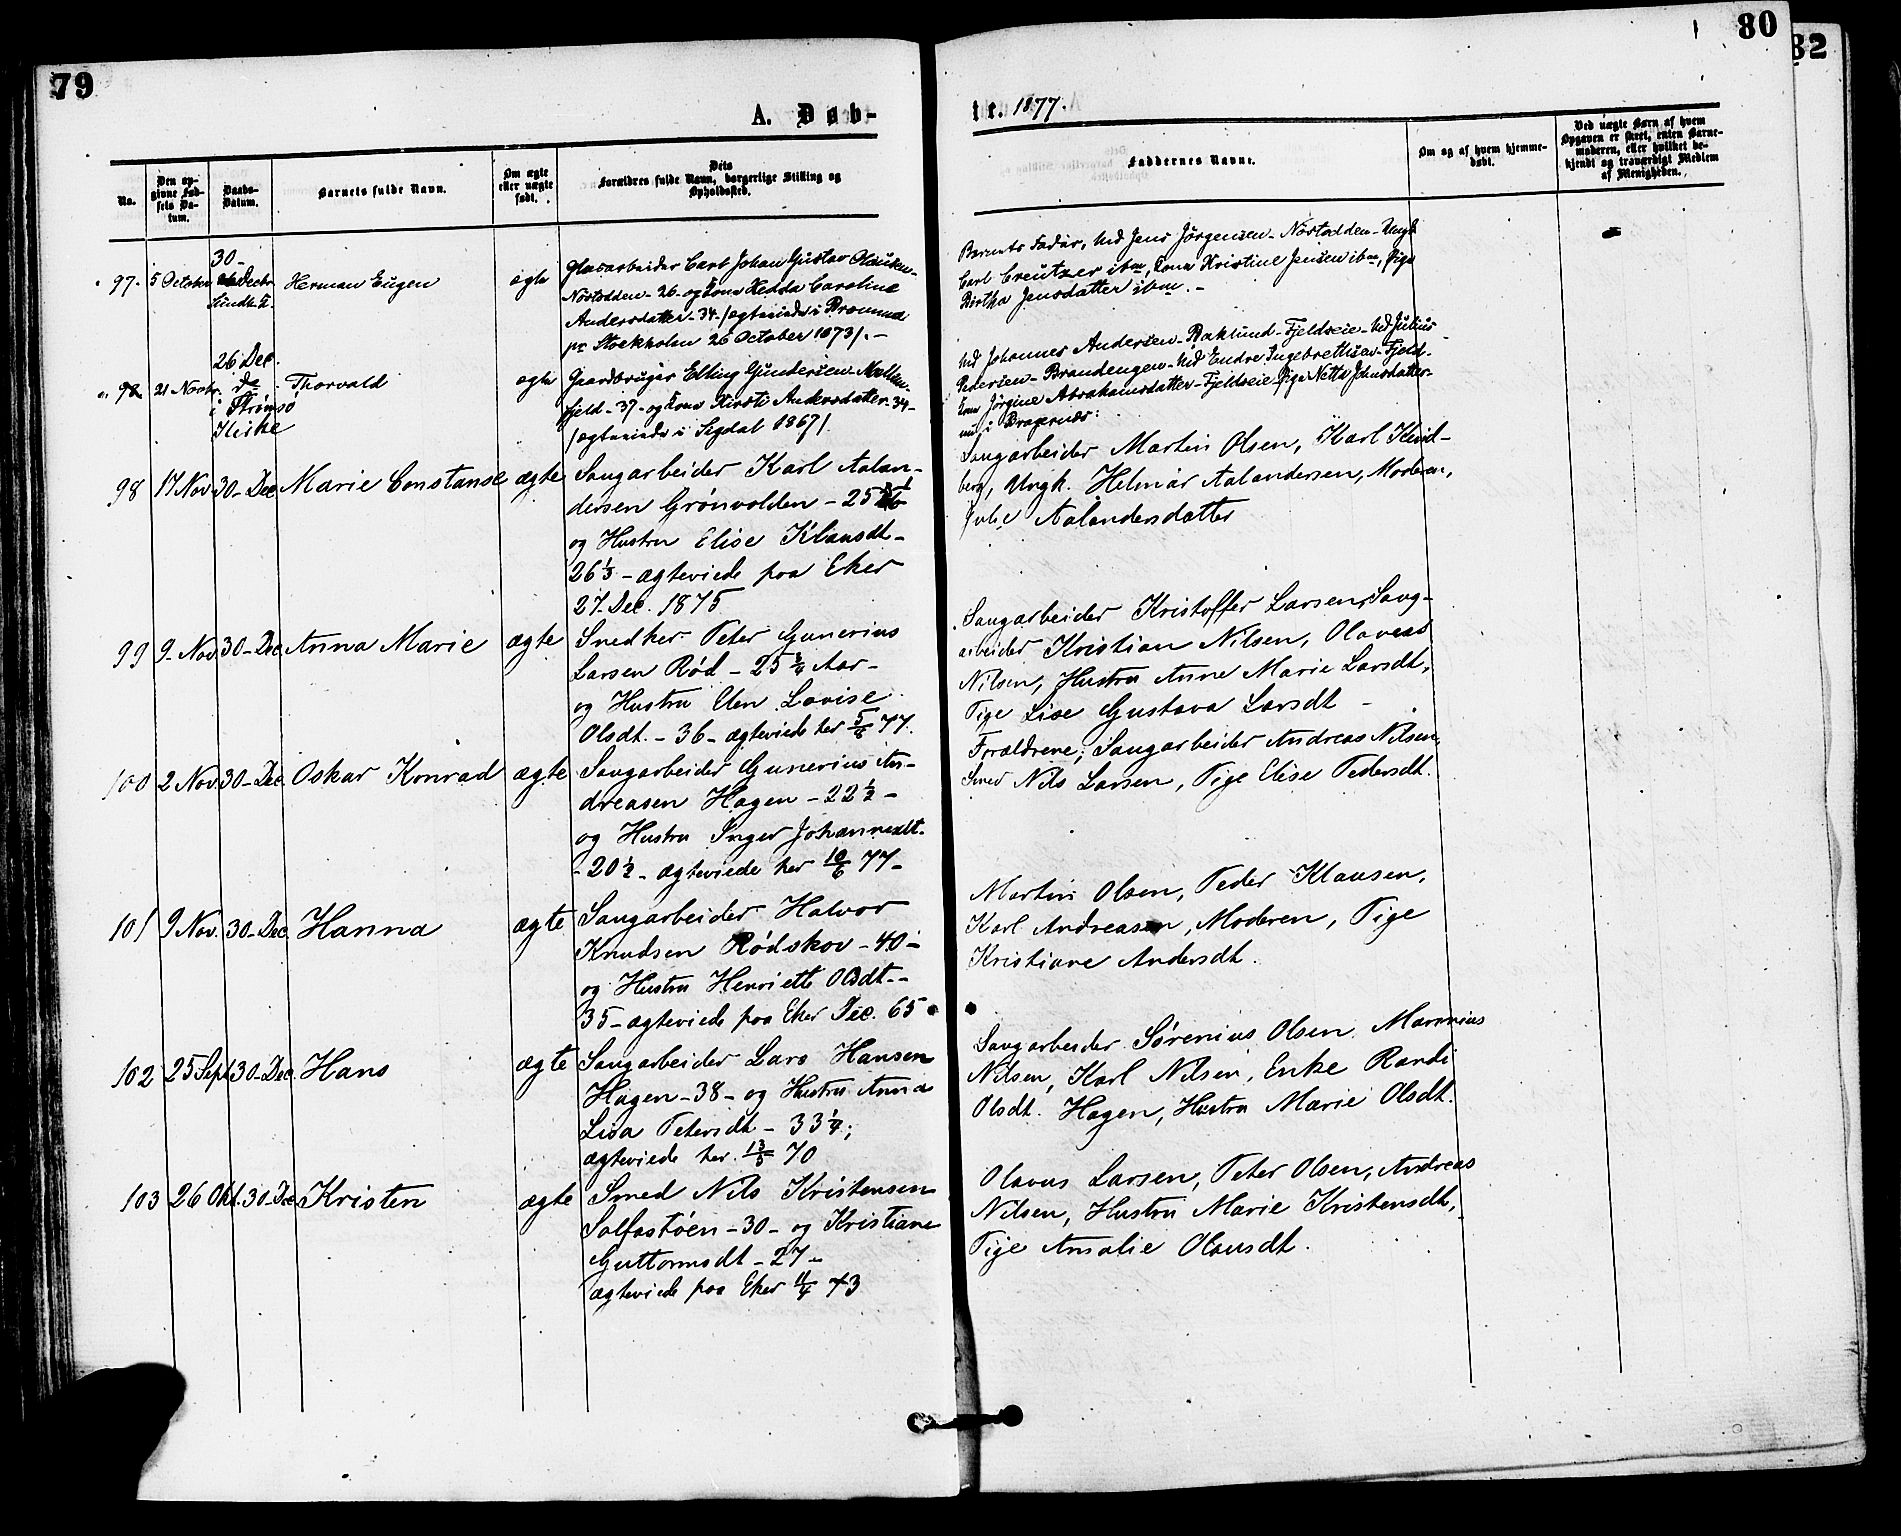 79
80
82
A. Døb-
te. 1877.
No.
Den op-
givne Fød-
sels Da-
tum.
Daabs-
Datum.
Barnets fulde Navn.
Om ægte
eller uægte
født.
Dets
Forældres fulde Navn, borgerlige Stilling og
Opholdssted.
Faddernes Navne.
Om og af hvem hjemme-
døbt.
Ved uægte Børn af hvem
Opgaven er skeet, enten Barne-
moderen, eller hvilket be-
kjendt og troværdigt Medlem
af Menigheden.
97. 5 October
30-
Decbr
Herman Eugen
ægte
Glasarbeider Carl Johan Gustav
26- og Kone Hedda Caroline
Andersdatter-34-/ægteviede i
pr Stockholm 26 October 1873/.-
Barnets Fader, Jens Jörgensen- Ungk
Carl Creutzer ibm, Kone Kristine Jensen ibm, Pige
Birthe Jensdatter ibm.-
21 Novbr.
26 Dec.
i Strømsø
Kirke
Thorvald
ægte
Gaardbruger Elling Gundersen
fjeld-37-og Kone Kirsti Andersdatter-34-
/ægteviede i Sigdal 1867/.
Johannes Andersen- Fjeldseie- Julius
Pedersen- Brandengen- Endre Ingebrethsen-Fjeld-
Kone Jörgine Abrahamsdatter-Fjeldseie Pige Netta Johnsdatter-
i Bragernæs:
98
17 Nov
30- Dec
Marie Constanse
ægte
Saugarbeider Karl Aalan-
dersen Grönvolden - 25
og Hustru Elise Klausdt-
26 1/3 - ægteviede paa Eker
27. Dec. 1875
Saugarbeider Martin Olsen, Karl
berg, Ungk. Helmar Aalandersen, Moderen,
Julie Aalandersdatter
99
9- Nov.
30- Dec
Anna Marie
ægte
Snedker Peter Gunerius
Larsen Rød - 25 3/4 Aar-
og Hustru Elen Lovise
Olsdt. - 36 - ægteviede her 5/8 77.
Saugarbeider Kristoffer Larsen, Saug-
arbeider Kristian Nilsen, Olaveas
Nilsen, Hustru Anne Marie Larsdt,
Pige Lise Gustava Larsdt -
100
2 Nov.
30- Dec.
Oskar Konrad
ægte
Saugarbeider Gunerius An-
dreasen Hagen - 22 1/2 -
og Hustru Inger Johannesdt.
- 20 1/2 - ægteviede her 10/6 77-
Forældrene, Saugarbeider Andreas Nilsen,
Smed Nils Larsen, Pige Elise Pedersdt.
101
9 Nov.
30- Dec.
Hanna
ægte
Saugarbeider Halvor
Knudsen Rødskov - 40 -
og Hustru Henriette Olsdt--
35 - ægteviede paa Eker Dec. 65
Martin Olsen, Peder Klausen,
Karl Andreasen, Moderen, Pige
Kristiane Andersdt.
102
25 Sept
30- Dec.
Hans
ægte
Saugarbeider Lars Hansen
Hagen - 38 - og Hustru Anna
Lisa Petersdt - 33 1/4;
ægteviede her 13/5 70
Saugarbeider Sørenius Olsen,
Nilsen, Karl Nilsen, Enke Randi
Olsdt. Hagen, Hustru Marie Olsdt.
103
26 Okt.
30- Dec
Kristen
ægte
Smed Nils Kristensen
Solfastöen - 30 - og Kristiane
Guttormsdt - 27 -
ægteviede paa Eker 11/4 73
Olavus Larsen, Peter Olsen, Andreas
Nilsen, Hustru Marie Kristensdt,
Pige Amalie Olausdt.